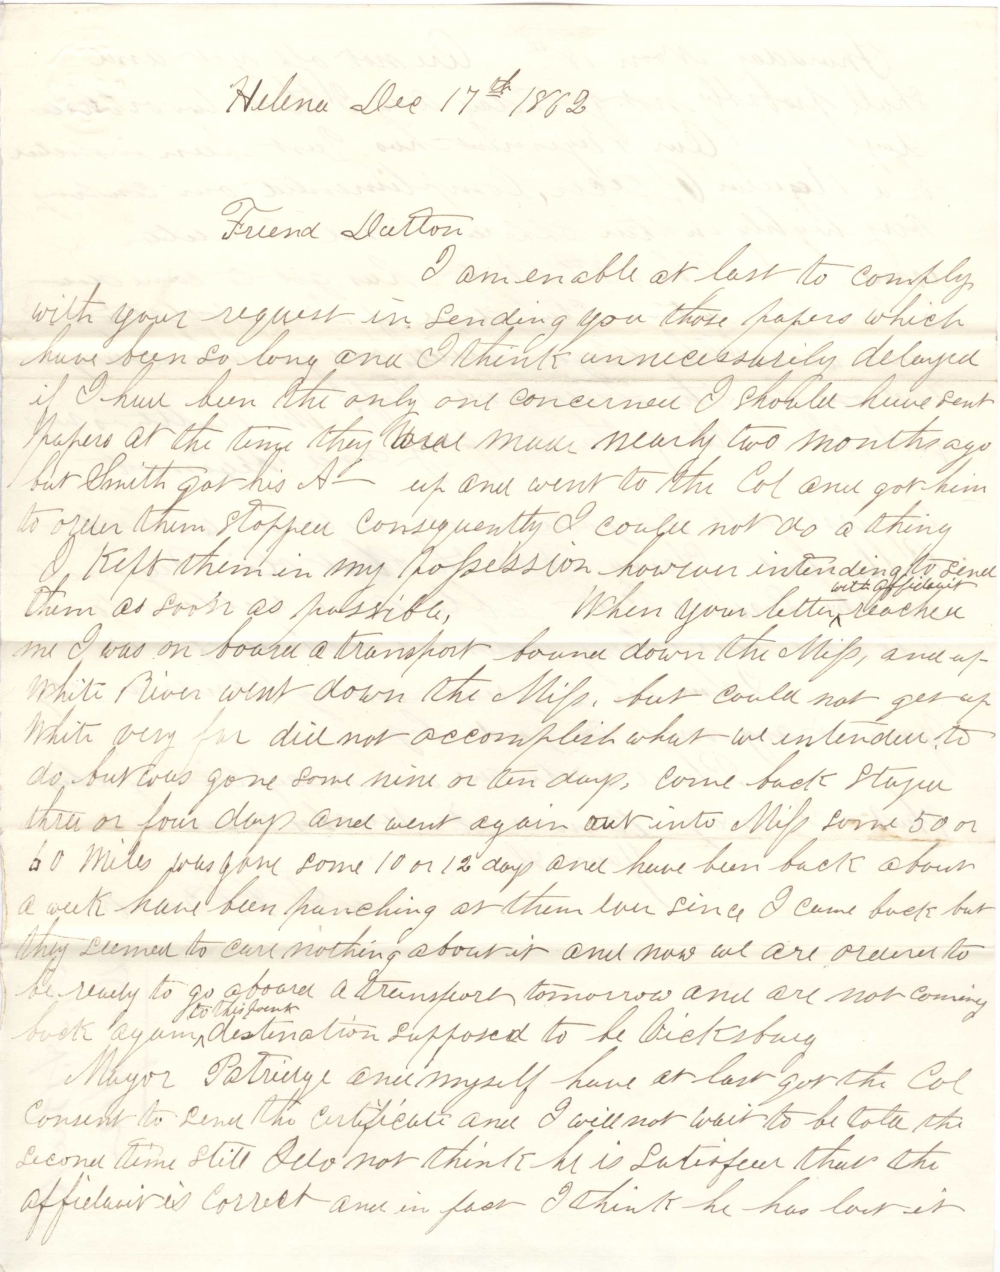 Helena Dec 17th 1862
Friend Dutton
I am enable at last to comply
with your request in sending you those papers which
have been so long and I think unnecessarily delayed
if I had been the only one concerned I should have sent
papers at the time they were made nearly two months ago
but Smith got his A— up and went to the Col and got him
to order them stopped consequently I could not do a thing
I kept them in my possession however intending to send
them as soon as possible, When your letter with affidavit reached
me I was on board a transport bound down the Miss, and up
White River went down the Miss, but could not get up
White very far did not accomplish what we intended to
do, but was gone some nine or ten days, come back stayed
three or four days and went again out into Miss some 50 or
60 miles was gone some 10 or 12 days and have been back about
a week have been punching at them ever since I came back but
they seemed to care nothing about it and now we are ordered to
be ready to go aboard a transport tomorrow and are not coming
back again, to this point destination supposed to be Vicksburg
Mayor Patridge and myself have at last got the Col
consent to send the certificate and I will not wait to be told the
second time still I do not think he is satisfied that the
affidavit is correct and in fact I think he has lost it